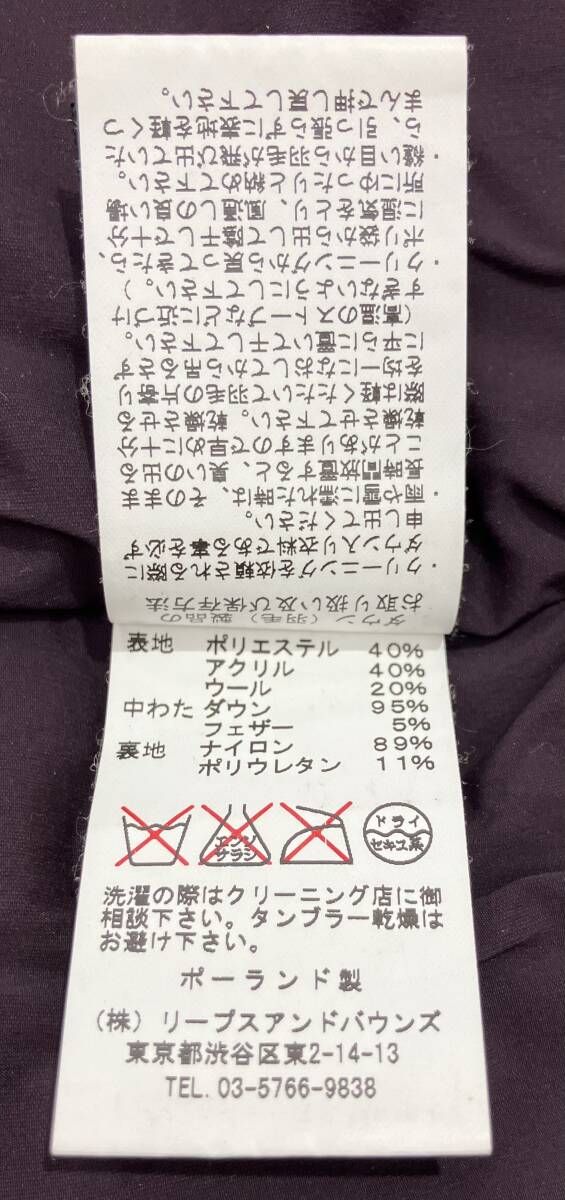 ダウン（羽毛）製品の
お取り扱い及び保存方法
・クリーニングを依頼される際に
ダウン入り衣料である事を必ず
申し出てください。
・雨や雪に濡れた時は、そのまま
長時間放置すると、臭いの出る
ことがありますので早めに十分
乾燥させて下さい。乾燥させる
際は軽くたたいて羽毛の片寄り
を均一になおしてから吊るさず
に平らに置いて干して下さい。
（高温のストーブなどに近づけ
すぎないようにして下さい。）
・クリーニングから戻ってきたら、
ポリ袋から出して陰干しで十分
に湿気をとり、風通しの良い場
所にゆったりと納めて下さい。
・縫い目から羽毛が飛び出ていた
ら、引っ張らずに表地を軽くつ
まんで押し戻して下さい。
表地 ポリエステル 40%
アクリル 40%
ウール 20%
中わた ダウン 95%
フェザー 5%
裏地 ナイロン 89%
ポリウレタン 11%
エンソサラシ ドライ セキユ系
洗濯の際はクリーニング店に御
相談下さい。タンブラー乾燥は
お避け下さい。
ポーランド製
（株）リープスアンドバウンズ
東京都渋谷区東2-14-13
TEL. 03-5766-9838